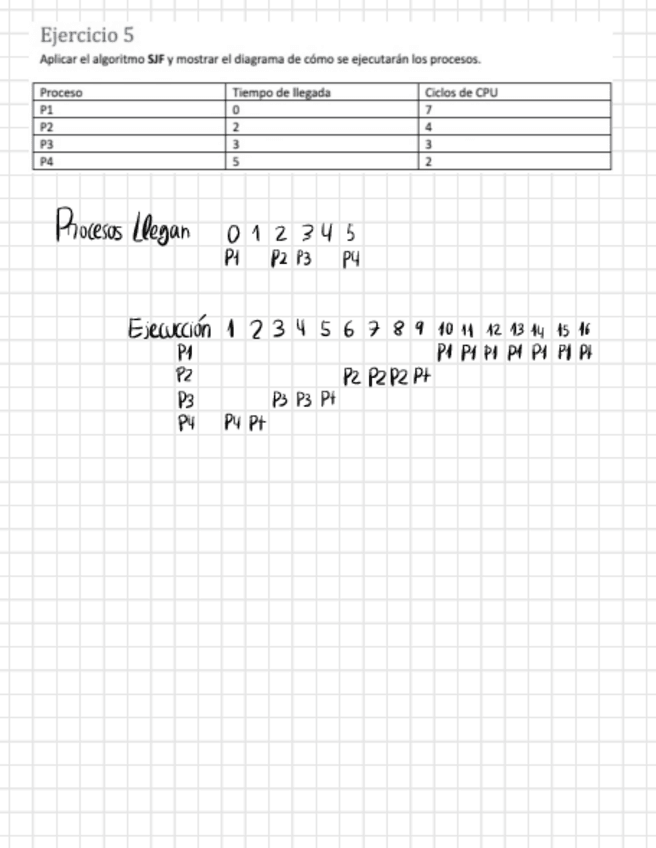 Ejercicio 5
Aplicar el algoritmo SJF y mostrar el diagrama de cómo se ejecutarán los procesos.
Proceso Tiempo de llegada Ciclos de CPU
P1 0 7
P2 2 4
P3 3 3
P4 5 2
Procesos Llegan 0 1 2 3 4 5
P1 P2 P3 P4
Ejecucción 1 2 3 4 5 6 7 8 9 10 11 12 13 14 15 16
P1 P1 P1 P1 P1 P1 P1 Pt
P2 P2 P2 P2 Pt
P3 P3 P3 Pt
P4 P4 Pt